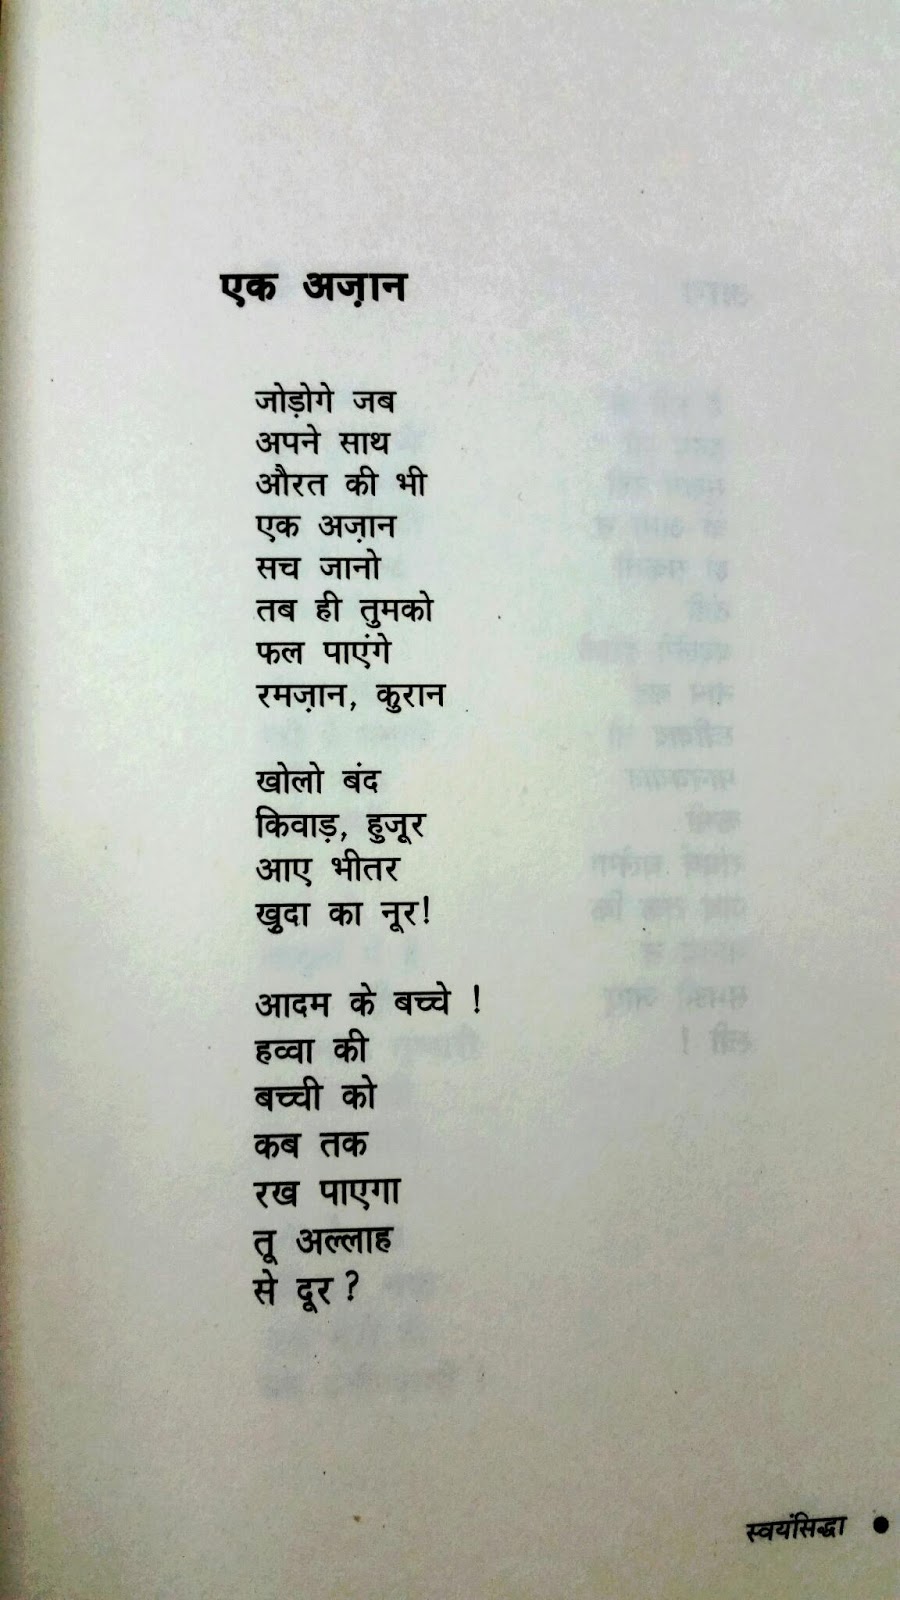 एक अज़ान
जोड़ोगे जब
अपने साथ
औरत की भी
एक अज़ान
सच जानो
तब ही तुमको
फल पाएंगे
रमज़ान, कुरान
खोलो बंद
किवाड़, हुजूर
आए भीतर
खुदा का नूर!
आदम के बच्चे !
हव्वा की
बच्ची को
कब तक
रख पाएगा
तू अल्लाह
से दूर ?
स्वयंसिद्धा ●